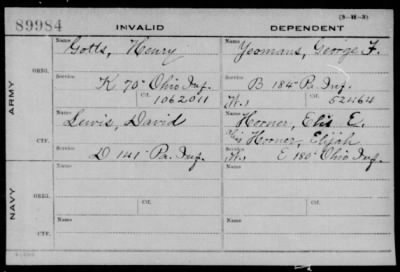 89984 INVALID DEPENDENT (3-H-3)
ARMY
NAVY
ORIG.
CTF.
ORIG.
CTF.
Name Gotts, Henry
Service K 70" Ohio Inf.
Ctf. 1062011
Name Lewis, David
Service D 141" Pa. Inf.
Name
Service
Ctf.
Name
Service
Name Yeomans, George F.
Service B 184" Pa. Inf.
W. Ctf. 52464
Name Hoover, Elis E.
Hoover, Elijah
Service W. E 180" Ohio Inf.
Name
Service
Ctf.
Name
Service